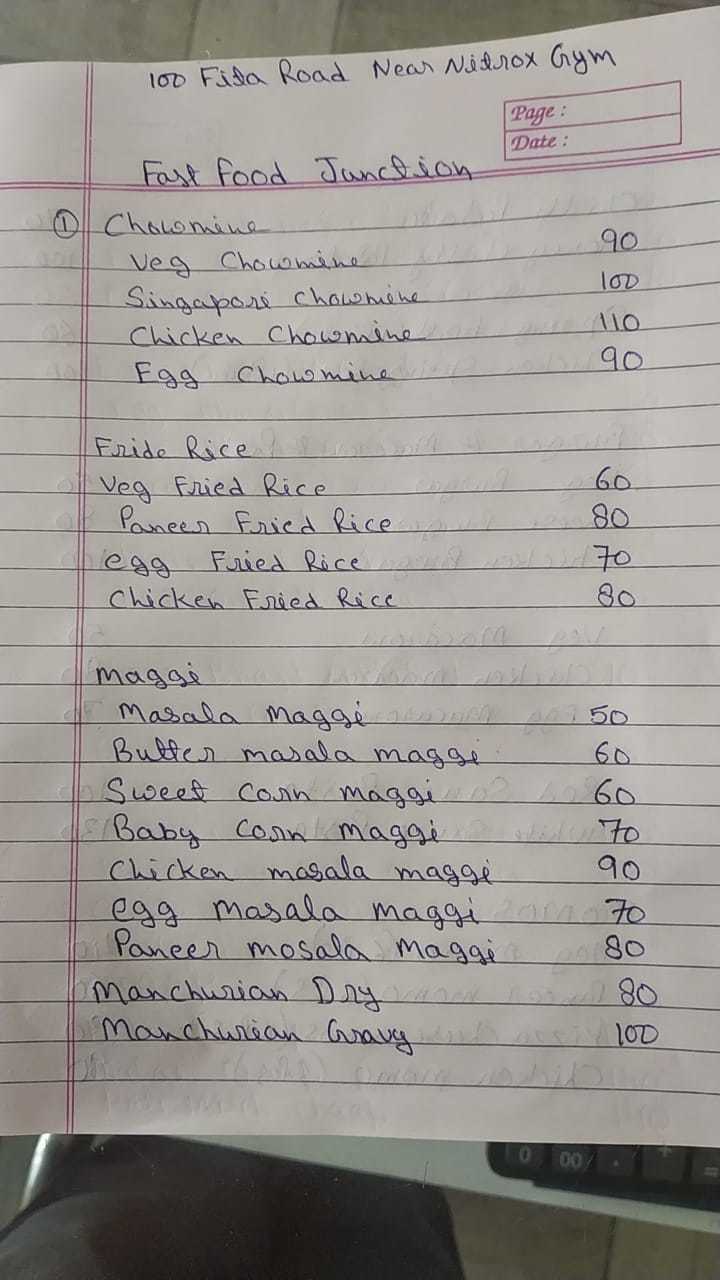 100 Fita Road Near Nitrox Gym
Page :
Date :
Fast Food Junction
① Chowmine
Veg Chowmine 90
Singapori Chowmine 100
Chicken Chowmine 110
Egg Chowmine 90
Fride Rice
Veg Fried Rice 60
Paneer Fried Rice 80
egg Fried Rice 70
Chicken Fried Rice 80
Maggi
Masala Maggi 50
Butter masala maggi 60
Sweet Corn maggi 60
Baby Corn maggi 70
Chicken masala maggi 90
egg masala maggi 70
Paneer mosala maggi 80
Manchurian Dry 80
Manchurian Gravy 100
0 00 . + =